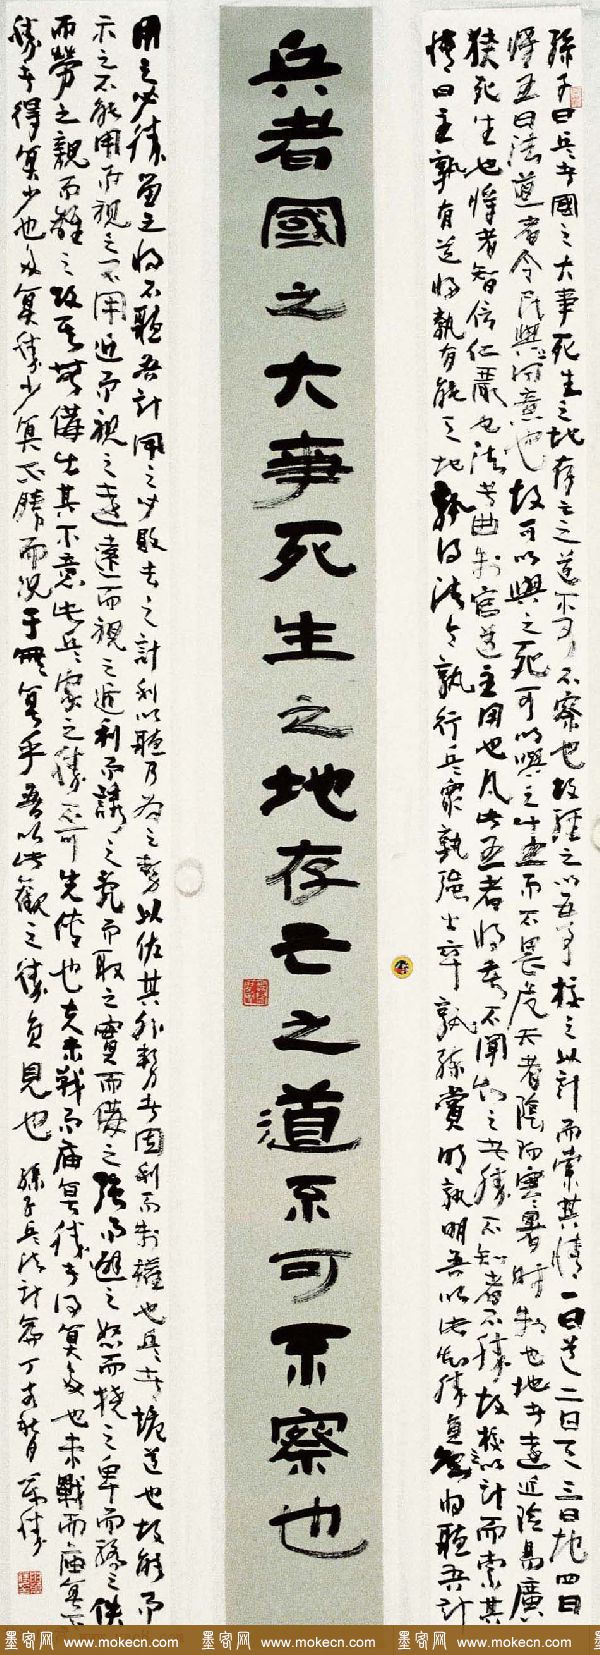 孫子曰兵者國之大事死生之地存亡之道不可不察也故經之以五事校之以計而索其情一曰道二曰天三曰地四曰
將五曰法道者令民與上同意也故可以與之死可以與之生而不畏危天者陰陽寒暑時制也地者遠近險易廣
狹死生也將者智信仁嚴也法者曲制官道主用也凡此五者將莫不聞知之者勝不知者不勝故校以計而索其
情曰主孰有道將孰有能天地孰得法令孰行兵眾孰強士卒孰練賞明孰明吾以此知勝負矣將聽吾計
兵者國之大事死生之地存亡之道不可不察也
用之必勝留之將不聽吾計用之必敗去之計利以聽乃為之勢以佐其外勢者因利而制權也兵者詭道也故能而
示之不能用而視之不用近而視之遠遠而視之近利而誘之亂而取之實而備之強而避之怒而撓之卑而驕之佚
而勞之親而離之攻其無備出其不意此兵家之勝不可先傳也夫未戰而廟算勝者得算多也未戰而廟算不
勝者得算少也多算勝少算不勝而況于無算乎吾以此觀之勝負見也 孫子兵法計篇 丁亥秋月
墨客网 www.mokecn.com 墨客网 www.mokecn.com 墨客网 www.mokecn.com